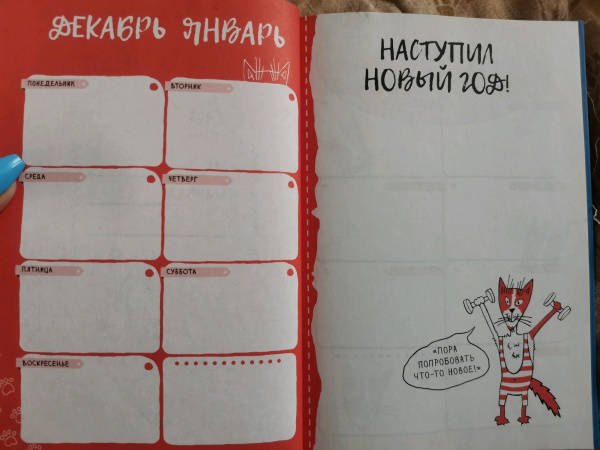 ДЕКАБРЬ ЯНВАРЬ
ПОНЕДЕЛЬНИК
ВТОРНИК
СРЕДА
ЧЕТВЕРГ
ПЯТНИЦА
СУББОТА
ВОСКРЕСЕНЬЕ
НАСТУПИЛ
НОВЫЙ ГОД!
«ПОРА
ПОПРОБОВАТЬ
ЧТО-ТО НОВОЕ!»